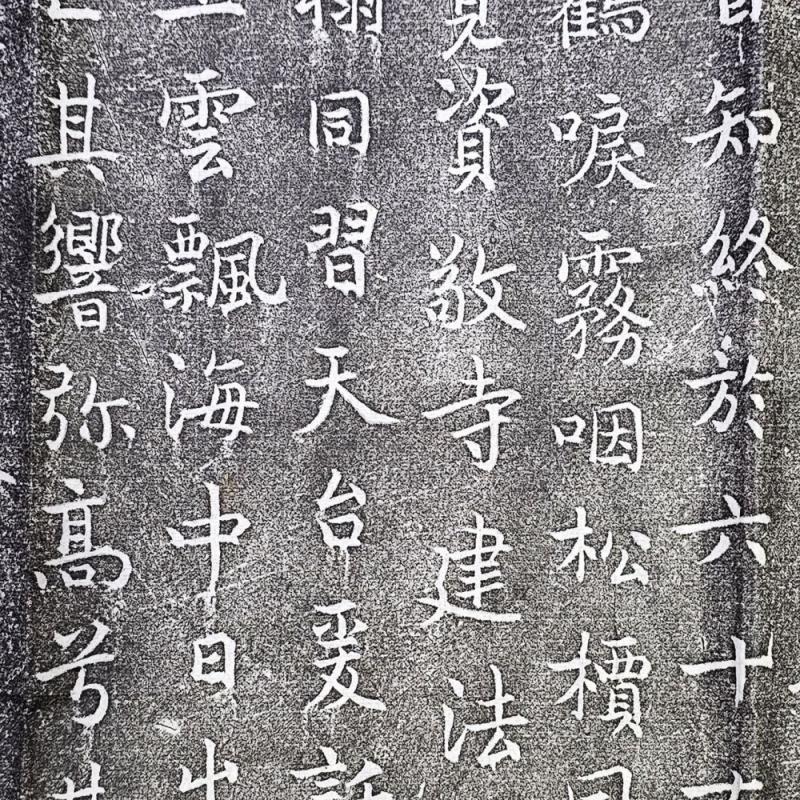 知終於六十
鶴唳霧咽松檟
資敬寺建法
同習天台爰託
雲飄海中日出
其響弥高兮其